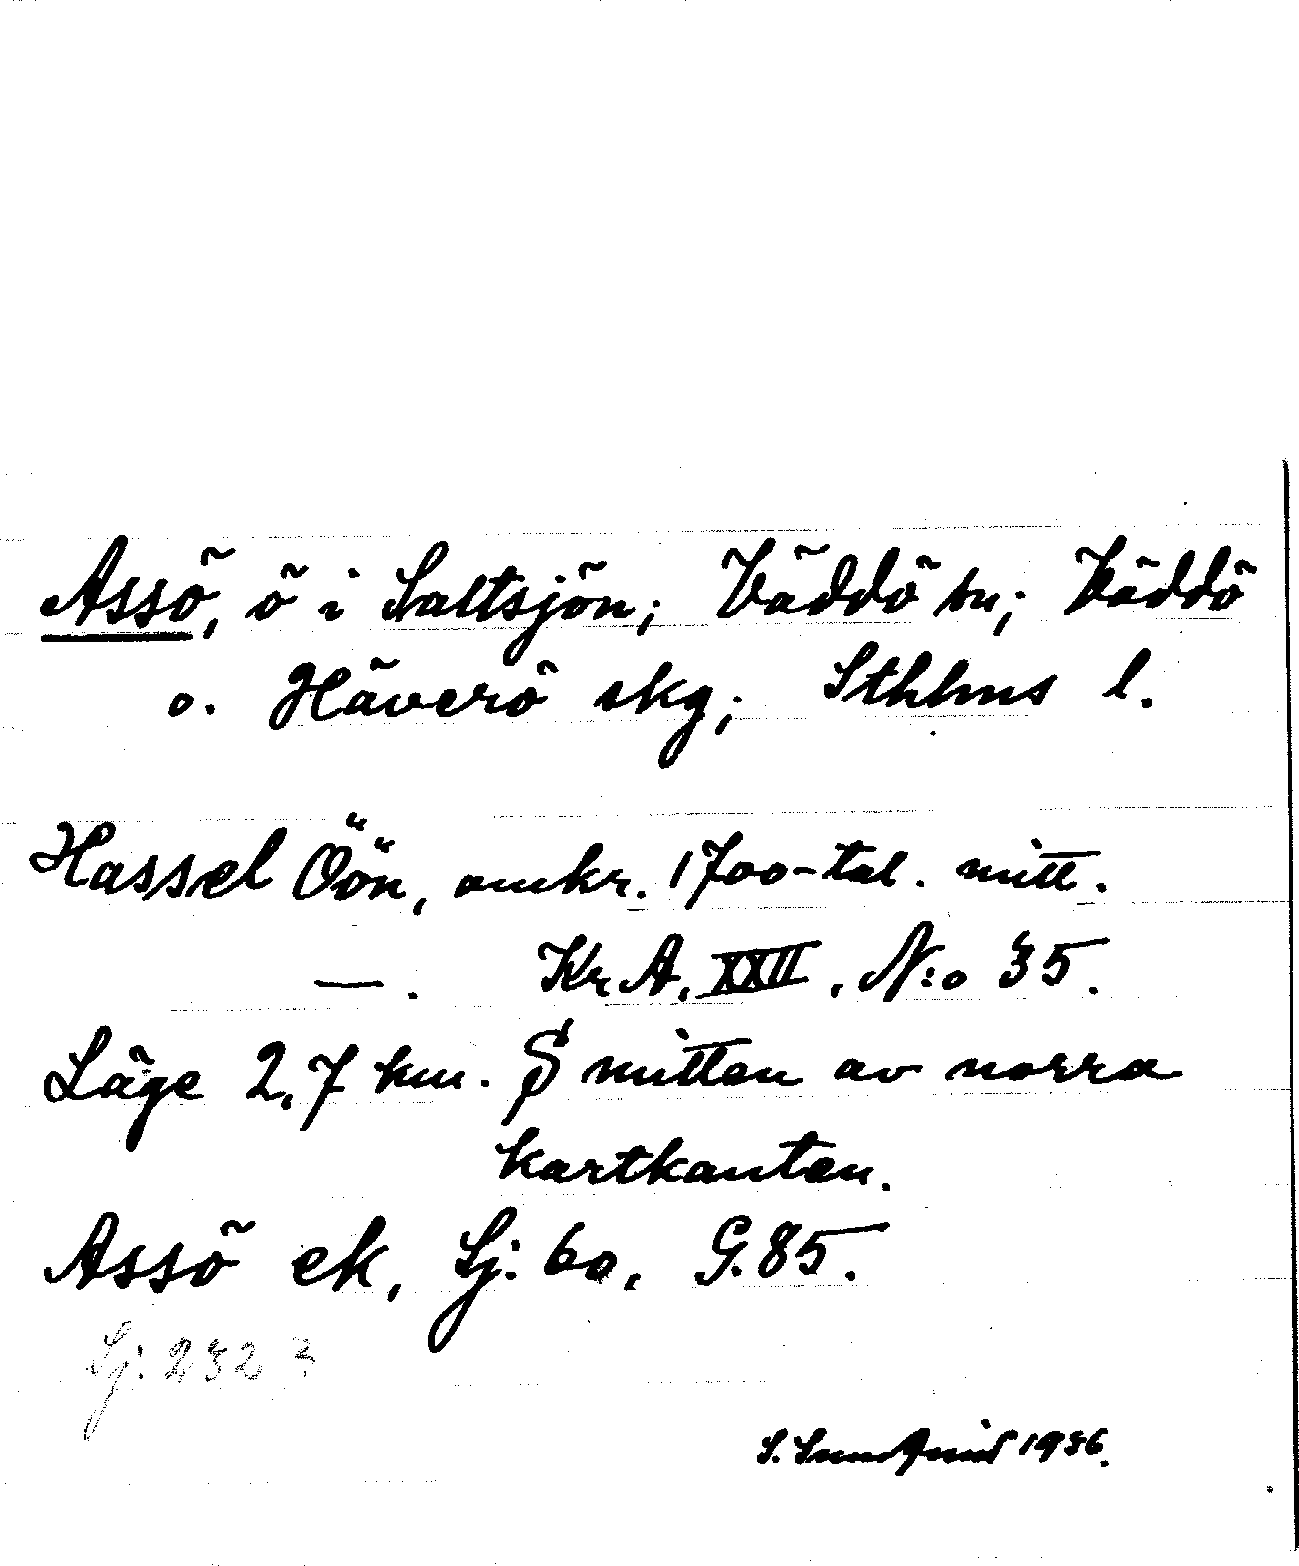 Assö, ö i Saltsjön; Väddö sn; Väddö
o. Häverö skg; Sthlms l.
Hassel Öön, omkr. 1700-tal. mitt.
—. Kr.A. XXII, N:o 35.
Läge 2,7 km. S mitten av norra
kartkanten.
Assö ek, Sj: 60, G.85.
Sj: 232 ?
S. Sundqvist 1936.